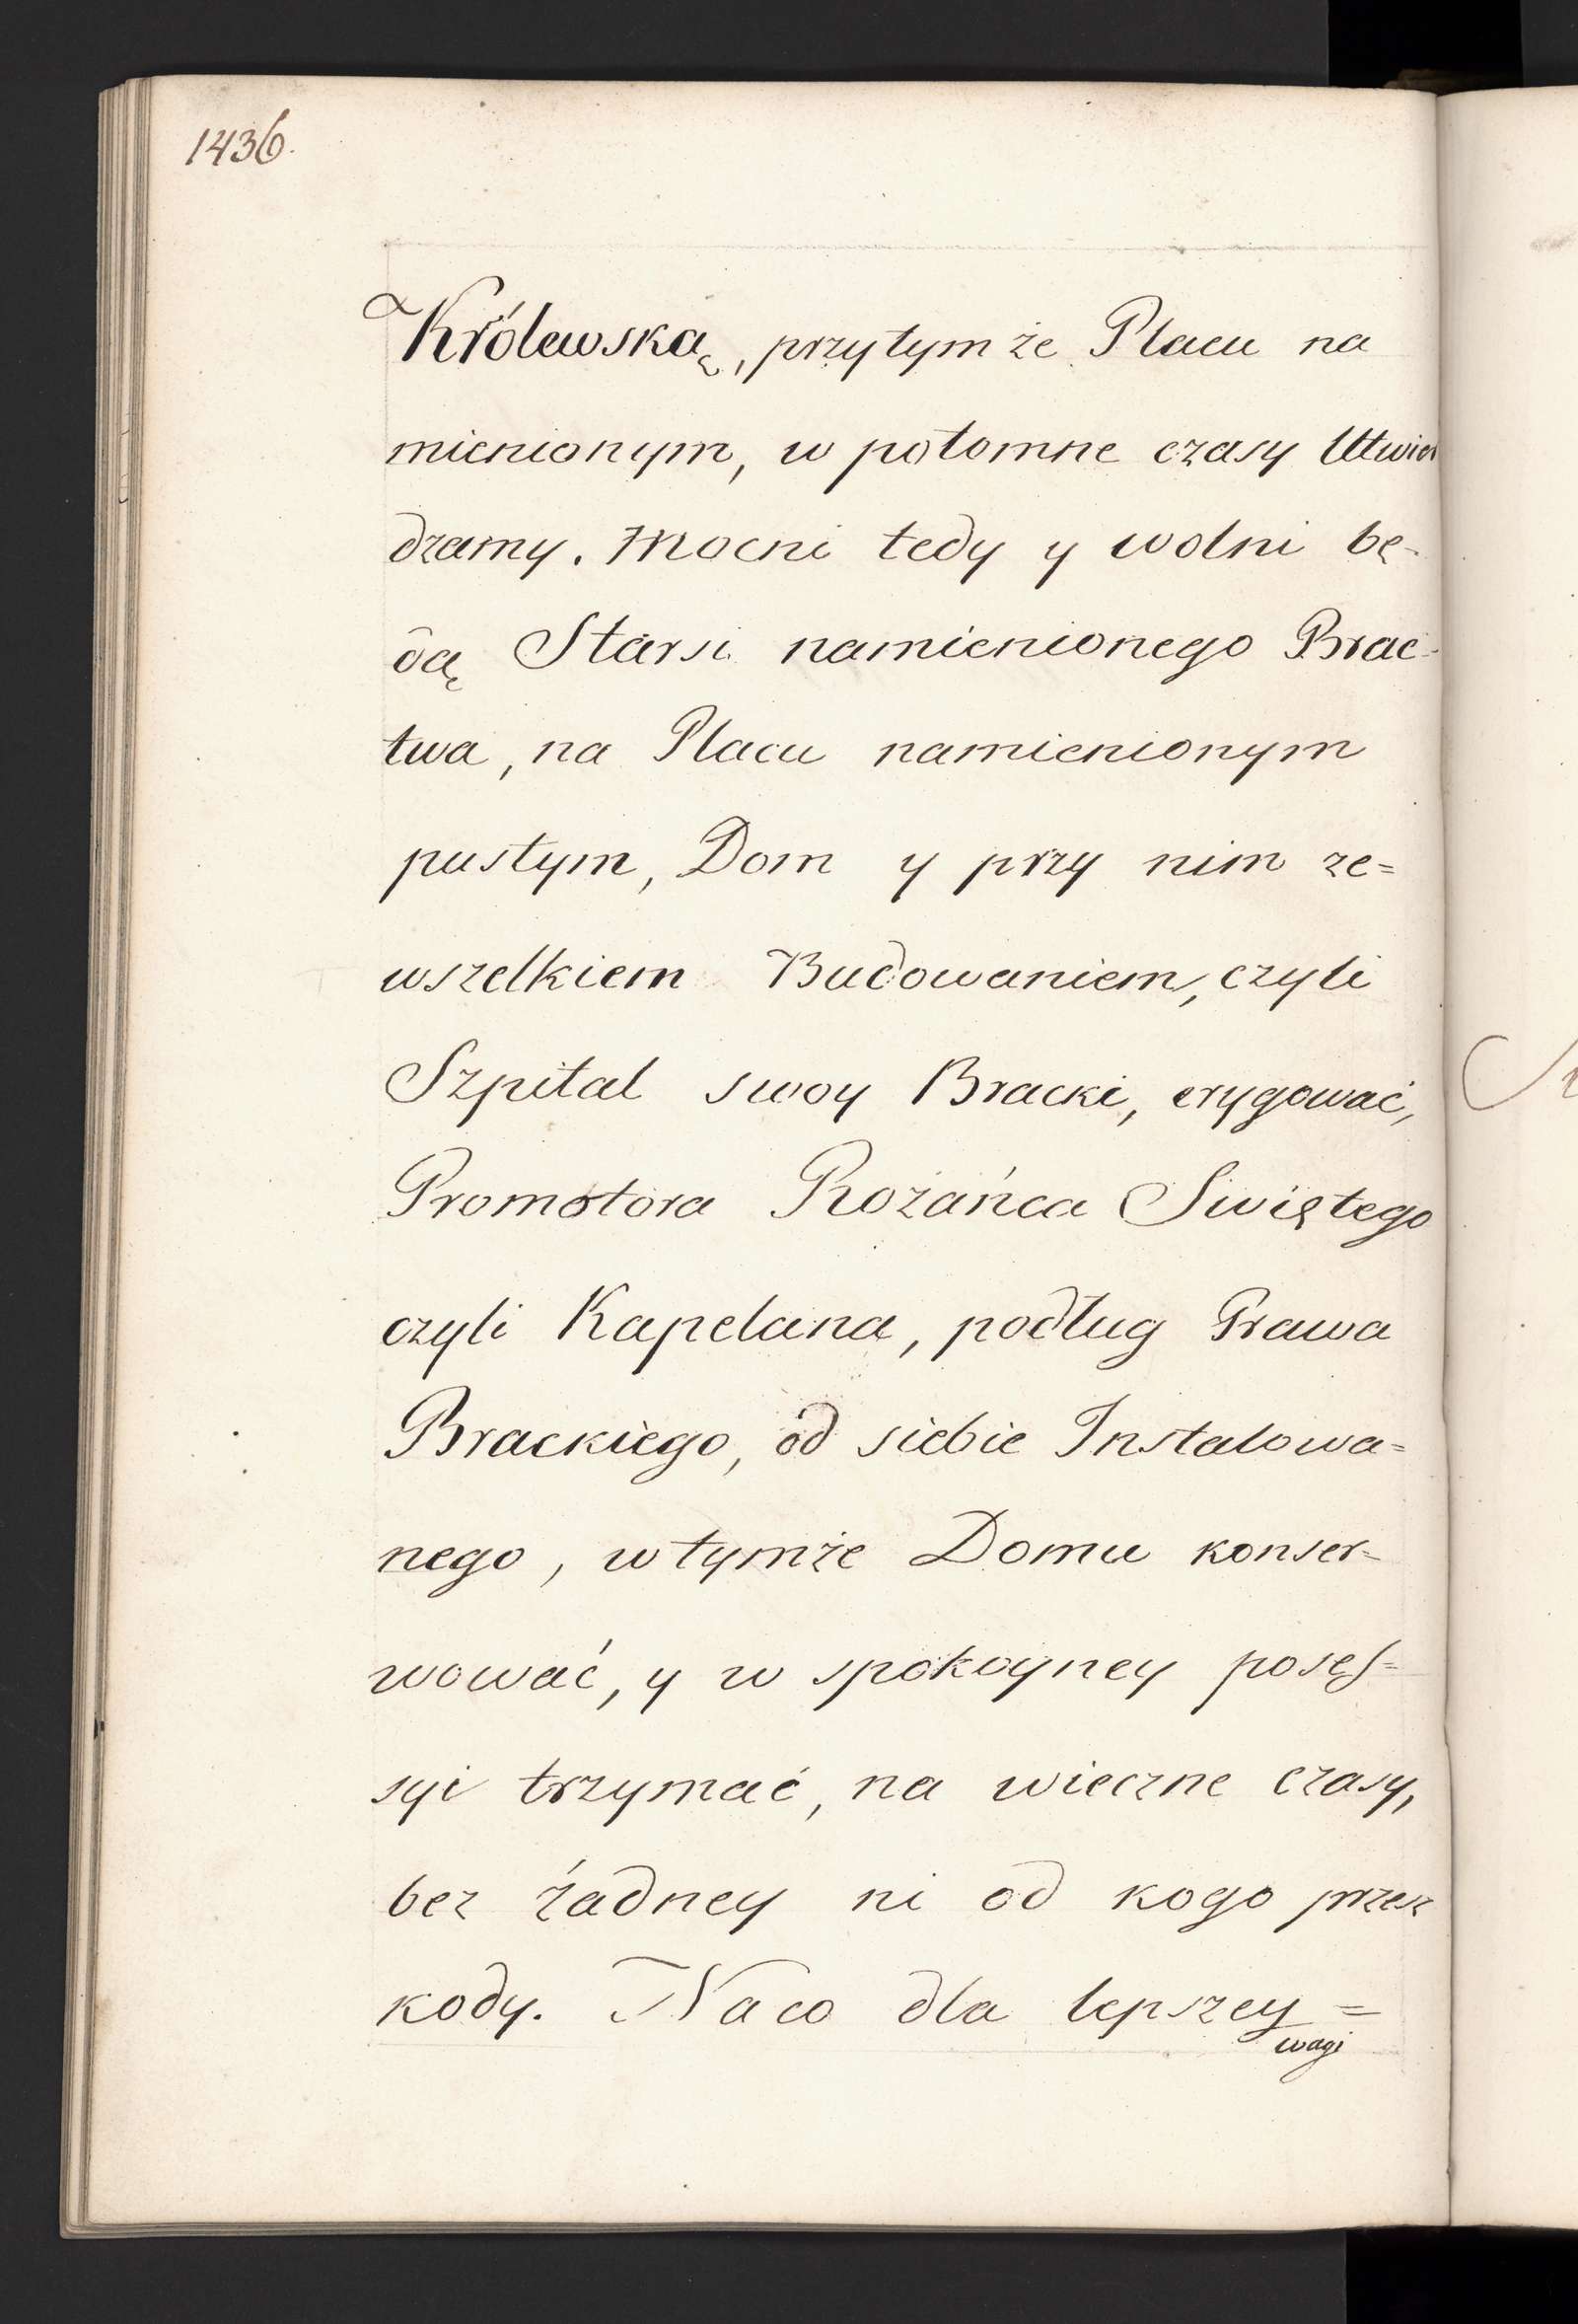 1436.
Królewską, przytym że Placu na
mienionym, w potomne czasy Utwier
dzamy. Mocni tedy y wolni bę-
dą Starsi namienionego Brac-
twa, na Placu namienionym
pustym, Dom y przy nim ze=
wszelkiem Budowaniem, czyli
Szpital swoy Bracki, erygować,
Promotora Rożańca Swiętego
czyli Kapelana, podług Prawa
Brackiego, od siebie Instalowa=
nego, w tymże Domu konser=
wować, y w spokoyney posęs=
syi trzymać, na wieczne czasy,
bez żadney ni od kogo przesz
kody. Na co dla lepszey =
wagi